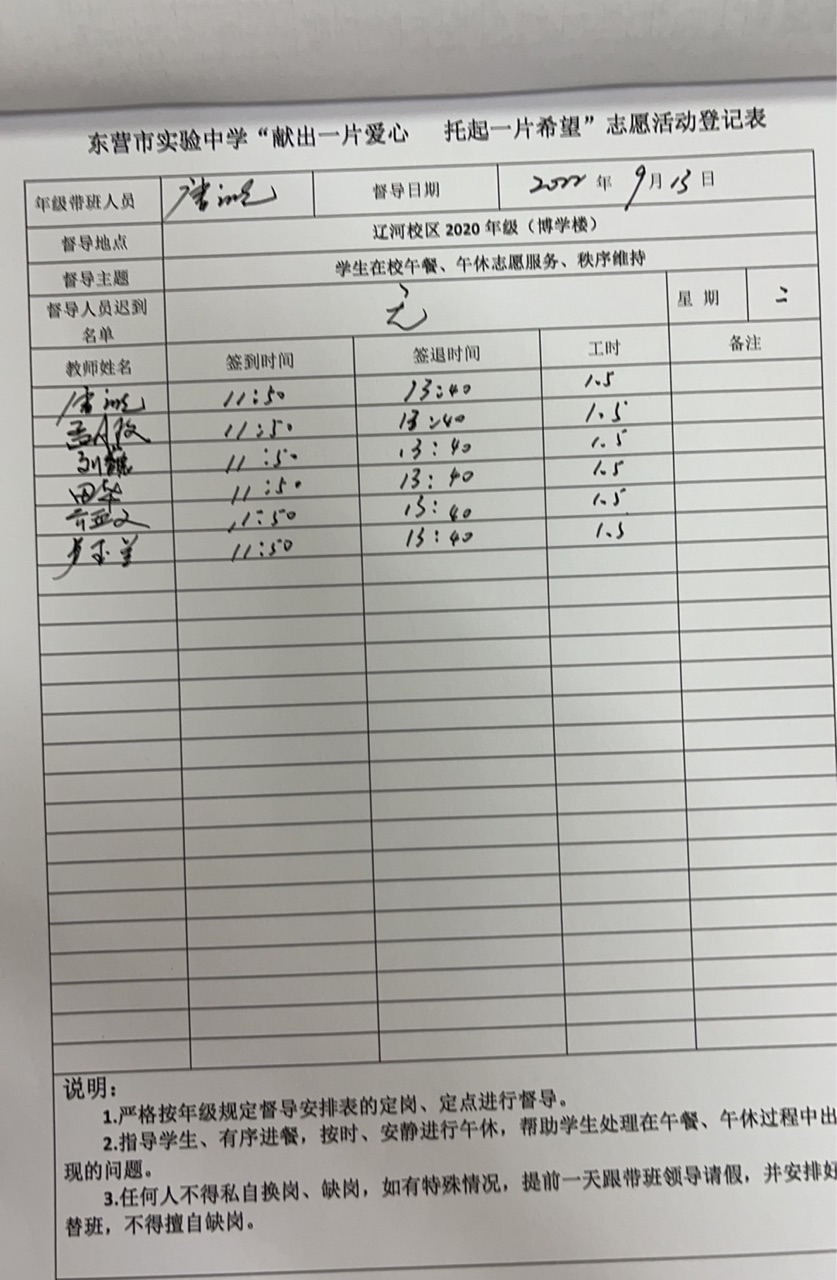 东营市实验中学“献出一片爱心 托起一片希望”志愿活动登记表
年级带班人员 督导日期 2022年9月13日
督导地点 辽河校区2020年级（博学楼）
督导主题 学生在校午餐、午休志愿服务、秩序维持
督导人员迟到名单 无 星期 二
教师姓名 签到时间 签退时间 工时 备注
11:50 13:40 1.5
11:50 13:40 1.5
11:50 13:40 1.5
田华 11:50 13:40 1.5
11:50 13:40 1.5
11:50 13:40 1.5
说明：
1.严格按年级规定督导安排表的定岗、定点进行督导。
2.指导学生、有序进餐，按时、安静进行午休，帮助学生处理在午餐、午休过程中出
现的问题。
3.任何人不得私自换岗、缺岗，如有特殊情况，提前一天跟带班领导请假，并安排好
替班，不得擅自缺岗。